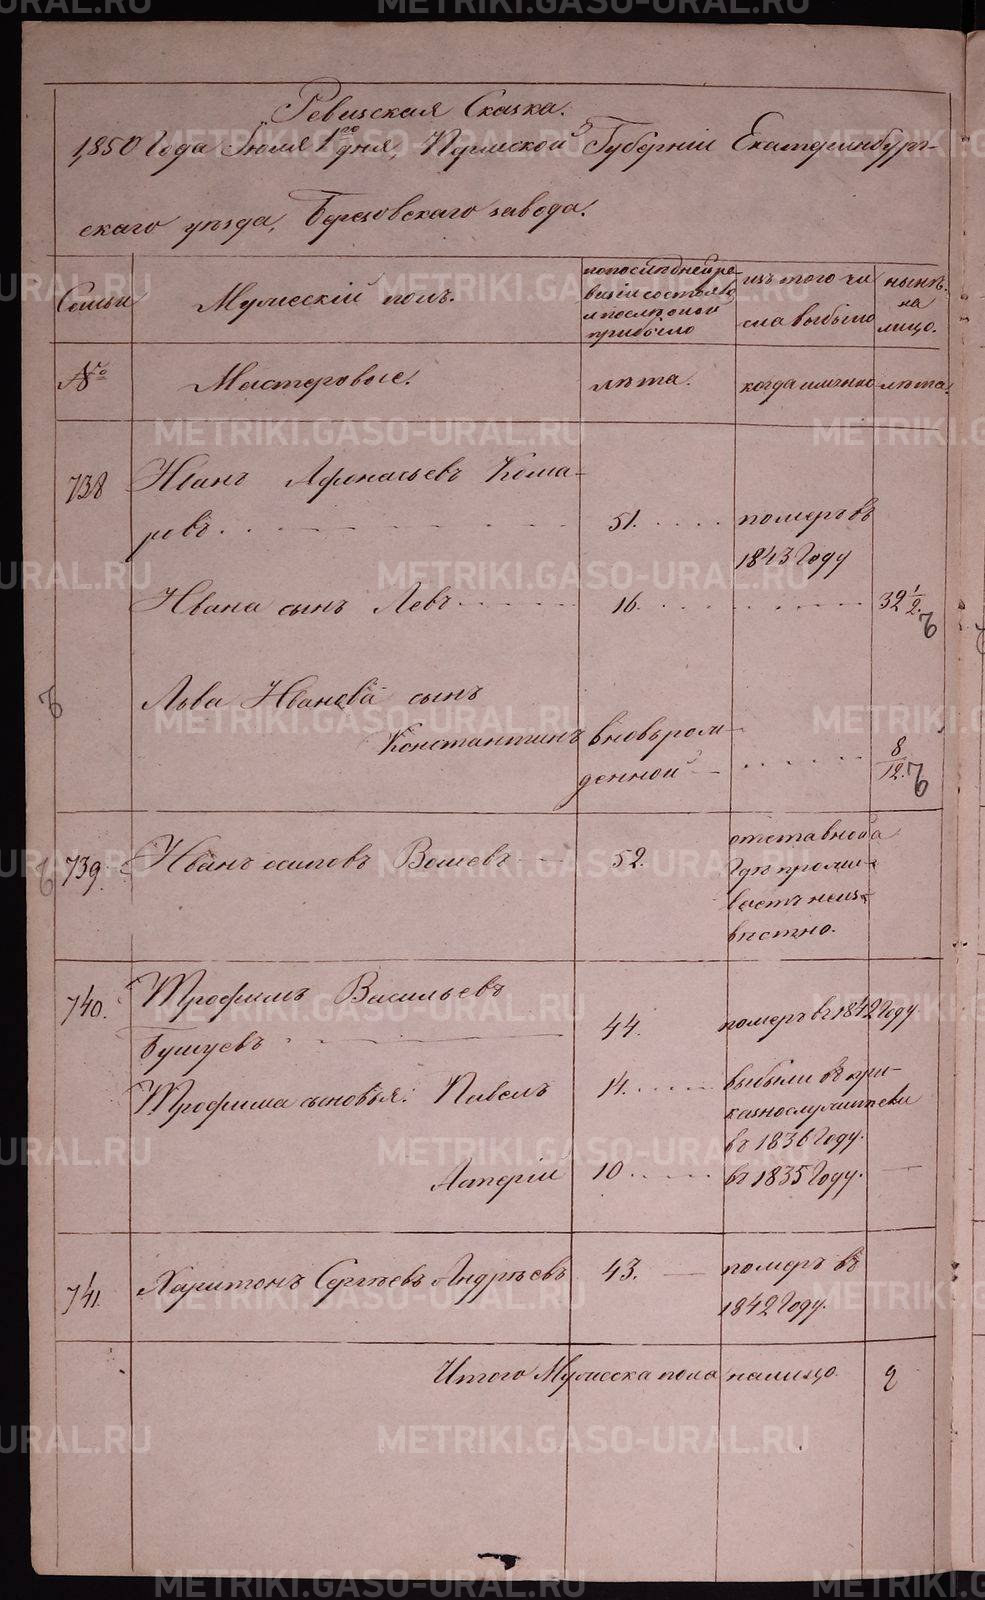 Ревизская Сказка.
1850 Года Июля 1го дня, Пермской Губерніи Екатеринбург-
скаго уѣзда, Березовскаго завода.
Семьи
Мужескій полъ.
попослѣдней ре-
визіи состояло
и послѣ оной
прибыло
изъ того чи
сла выбыло
нынѣ
на
лицо.
№
Мастеровые.
лѣта.
когда именно
лѣта.
738
Иванъ Афонасьевъ Кома-
ровъ.
51.
померъ въ
1843 Году
Ивана сынъ Левъ
16.
32 1/2.
Льва Иванова сынъ
Константинъ
вновьрож-
денной
8/12.
739.
Иванъ осиповъ Вошевъ
52.
отставной а
Гдѣ прожи-
ваетъ неиз-
вѣстно.
740.
Трофимъ Васильевъ
Бушуевъ
44.
померъ въ 1842 Году.
Трофима сыновья: Павелъ
14.
выбыли въ при-
казнослужители
въ 1836 Году.
Валерій
10
въ 1835 Году.
741.
Харитонъ Сергѣевъ Андрѣевъ
43.
померъ въ
1842 Году.
Итого Мужеска пола налицо
2
METRIKI.GASO-URAL.RU